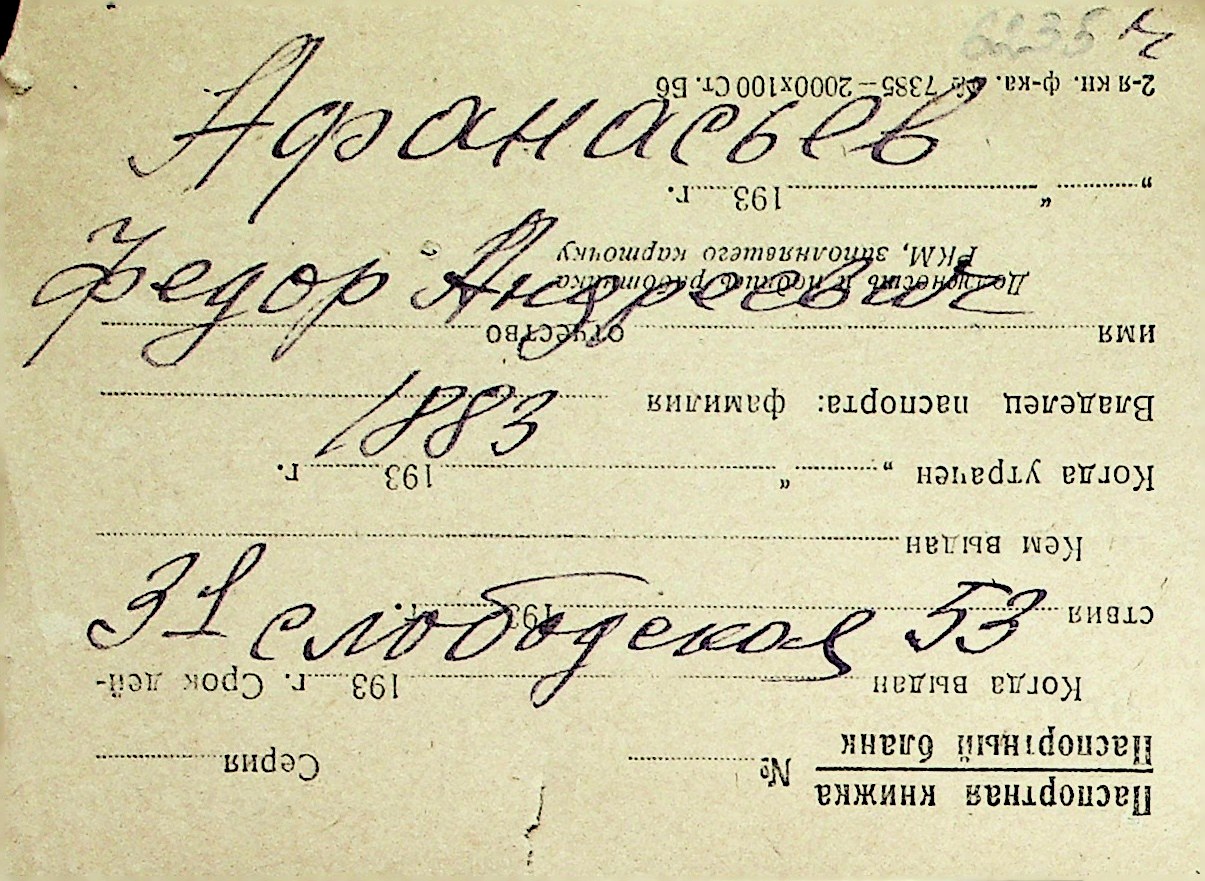 Афанасьев
Федор Андреевич
1883
31 слободская 53
Паспортная книжка
Паспортный бланк № Серия
Когда выдан 193 г. Срок дей-
ствия 193 г.
Кем выдан
Когда утрачен „ “ 193 г.
Владелец паспорта: фамилия
имя отчество
Должность и подпись работника
РКМ, заполнявшего карточку
„ “ 193 г.
2-я кн. ф-ка. № 7385—2000х100 Ст. Бб